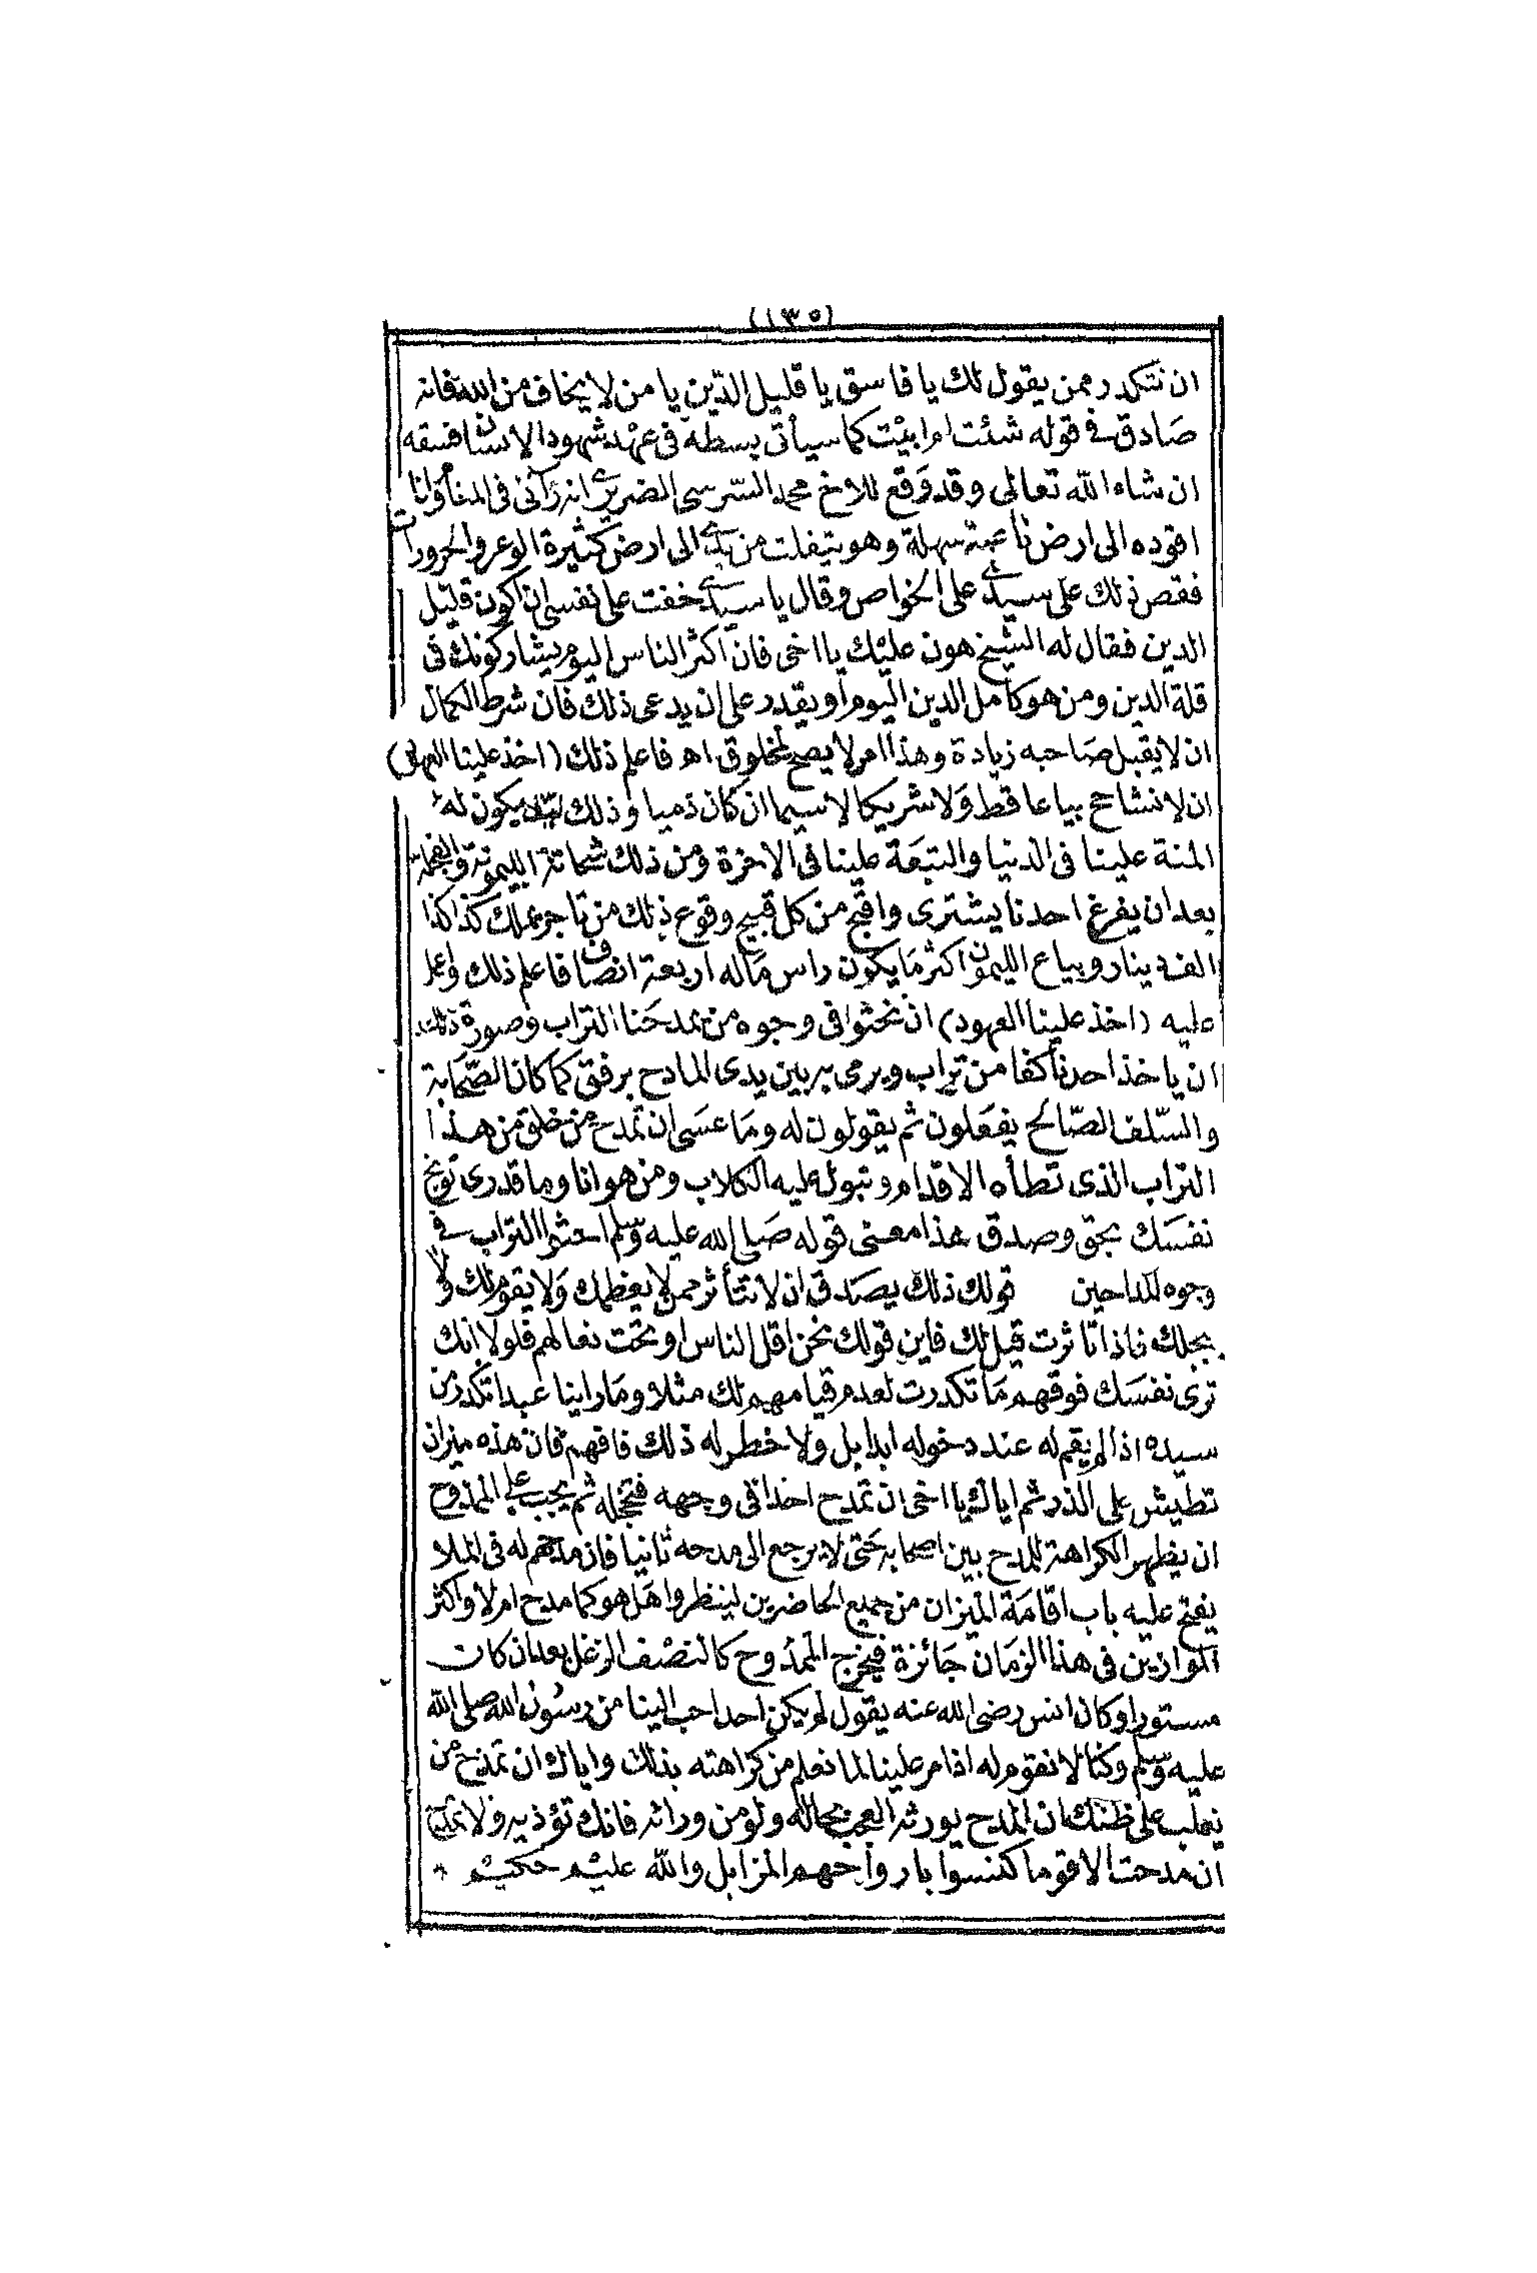 (١٣٥)
ان نتكدر ممن يقول لك يا فاسق يا قليل الدين يا من لا يخاف من الله فانه
صادق في قوله شئت ام ابيت كما سيأتى بسطه فى عهد شهود الانسان فسقه
ان شاء الله تعالى وقد وقع للاخ محمد السرسى الضرير انه رآنى فى المنام وانا
اقوده الى ارض ناعمة سهلة وهو يتفلت من يدى الى ارض كثيرة الوعر والحرورات
فقص ذلك على سيدى على الخواص وقال يا سيدى خفت على نفسى ان اكون قليل
الدين فقال له الشيخ هون عليك يا اخى فان اكثر الناس اليوم يشاركونك فى
قلة الدين ومن هو كامل الدين اليوم او يقدر على ان يدعى ذلك فان شرط الكمال
ان لا يقبل صاحبه زيادة وهذا امر لا يصح لمخلوق اه فاعلم ذلك (اخذ علينا العهود)
ان لا نشاحح بياعا قط ولا شريكا لا سيما ان كان ذميا وذلك لئلا يكون له
المنة علينا فى الدنيا والتبعة علينا فى الاخرة ومن ذلك شماتة الليمونة والفجلة
بعد ان يفرغ احدنا يشترى واقبح من كل قبيح وقوع ذلك من تاجر يملك كذا كذا
الف دينار وبياع الليمون اكثر ما يكون راس ماله اربعة انصاف فاعلم ذلك واعمل
عليه (اخذ علينا العهود) ان نحثوا فى وجوه من يمدحنا التراب وصورة ذلك
ان ياخذ احدنا كفا من تراب ويرمى به بين يدى المادح برفق كما كان الصحابة
والسلف الصالح يفعلون ثم يقولون له وما عسى ان تمدح من خلق من هذا
التراب الذى تطأه الاقدام وتبول عليه الكلاب ومن هو انا وما قدرى توبخ
نفسك بحق وصدق هذا معنى قوله صلى الله عليه وسلم احثوا التراب في
وجوه المداحين قولك ذلك بصدق ان لا تتأثر ممن لا يعظمك ولا يقوم لك ولا
يبجلك فاذا تاثرت قيل لك فاين قولك نحن اقل الناس او تحت نعالهم فلولا انك
ترى نفسك فوقهم ما تكدرت لعدم قيامهم لك مثلا وما راينا عبدا تكدر من
سيده اذا لم يقم له عند دخوله ابدا بل ولا خطر له ذلك فافهم فان هذه ميزان
تطيش على الذر ثم اياك يا اخى ان تمدح احدا فى وجهه فتخجله ثم يجب على الممدوح
ان يظهر الكراهة للمدح بين اصحابه حتى لا يرجع الى مدحه ثانيا فان مدحهم له فى الملا
يفتح عليه باب اقامة الميزان من جميع الحاضرين لينظروا هل هو كما مدح ام لا واكثر
الموازين فى هذا الزمان جائزة فيخرج الممدوح كالنصف الزغل بعد ان كان
مستورا وكان انس رضى الله عنه يقول لم يكن احد احب الينا من رسول الله صلى الله
عليه وسلم وكنا لا نقوم له اذا مر علينا لما نعلم من كراهته بذلك واياك ان تمدح من
يغلب على ظنك ان المدح يورثه العجب بحاله ولو من ورائه فانك تؤذيه ولا تمدح
ان مدحت الا قوما كنسوا بارواحهم المزابل والله عليم حكيم *